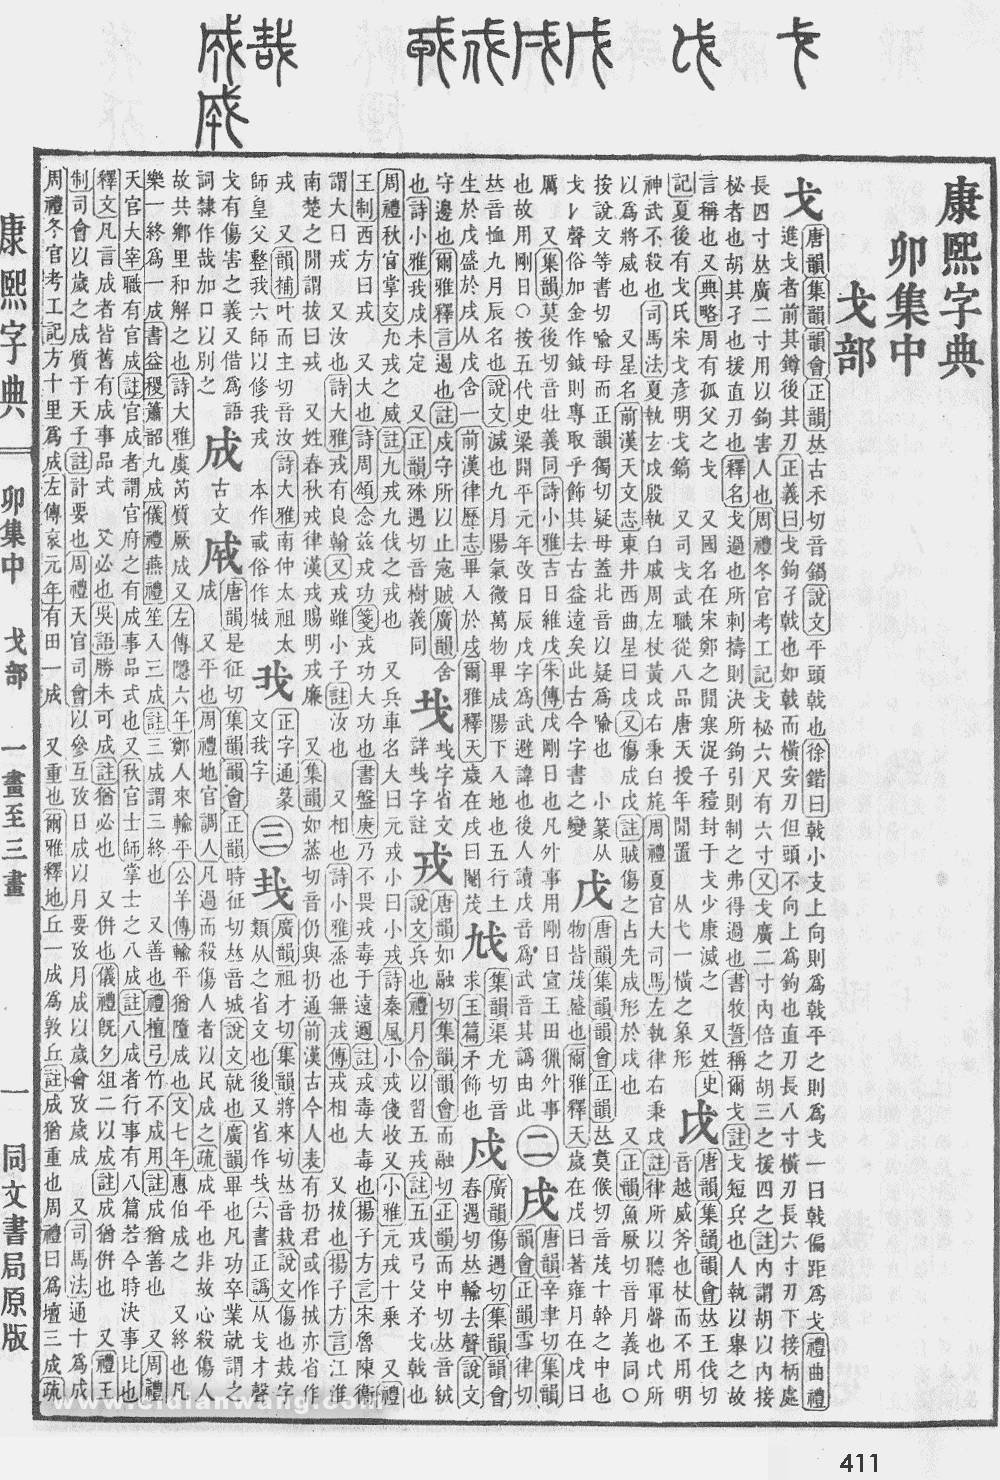 康熙字典
卯集中
戈部
戈 唐韻集韻韻會正韻𠀤古禾切音鍋說文平頭戟也徐鍇曰戟小支上向則爲戟平之則爲戈一曰戟偏距爲戈禮曲禮
進戈者前其鐏後其刃正義曰戈鉤孑戟也如戟而橫安刃但頭不向上爲鉤也直刃長八寸橫刃長六寸刃下接柄處
長四寸𠀤廣二寸用以鉤害人也周禮冬官考工記戈柲六尺有六寸又戈廣二寸內倍之胡三之援四之註內謂胡以內接
秘者也胡其孑也援直刃也釋名戈過也所刺擣則決所鉤引則制之弗得過也書牧誓稱爾戈註戈短兵也人執以舉之故
言稱也又典略周有孤父之戈 又國名在宋鄭之閒寒浞子豷封于戈少康滅之 又姓史
記夏後有戈氏宋戈彥明戈鎬 又司戈武職從八品唐天授年閒置 从弋一橫之象形
戉 唐韻集韻韻會𠀤王伐切
音越威斧也杖而不用明
神武不殺也司馬法夏執玄戉殷執白戚周左杖黃戉右秉白旄周禮夏官大司馬左執律右秉戉註律所以聽軍聲也戉所
以爲將威也 又星名前漢天文志東井西曲星曰戉又傷成戉註賊傷之占先成形於戉也 又正韻魚厥切音月義同〇
按說文等書切喩母而正韻獨切疑母蓋北音以疑爲喩也 小篆从
戈𠄌聲俗加金作鉞則專取乎飾其去古益遠矣此古今字書之變
戊 唐韻集韻韻會正韻𠀤莫候切音茂十幹之中也
物皆茂盛也爾雅釋天歲在戊曰著雍月在戊曰
厲 又集韻莫後切音牡義同詩小雅吉日維戊朱傳戊剛日也凡外事用剛日宣王田獵外事
也故用剛日〇按五代史梁開平元年改日辰戊字爲武避諱也後人讀戊音爲武音其譌由此
二
戌 唐韻辛聿切集韻
韻會正韻雪律切
𠀤音恤九月辰名也說文滅也九月陽氣微萬物畢成陽下入地也五行土
生於戊盛於戌从戊含一前漢律歷志畢入於戌爾雅釋天歲在戌曰閹茂
𢦐 集韻渠尤切音
求玉篇矛飾也
戍 廣韻傷遇切集韻韻會
舂遇切𠀤輸去聲說文
守邊也爾雅釋言遏也註戍守所以止寇賊廣韻舍
也詩小雅我戍未定 又正韻殊遇切音樹義同
𢦏 𢦏字省文
詳𢦏字註
戎 唐韻如融切集韻韻會而融切正韻而中切𠀤音絨
說文兵也禮月令以習五戎註五戎弓殳矛戈戟也
周禮秋官掌交九戎之威註九戎九伐之戎也 又兵車名大曰元戎小曰小戎詩秦風小戎俴收又小雅元戎十乘 又禮
王制西方曰戎 又大也詩周頌念茲戎功箋戎功大功也書盤庚乃不畏戎毒于遠邇註戎毒大毒也揚子方言宋魯陳衞
謂大曰戎 又汝也詩大雅戎有良翰又戎雖小子註汝也 又相也詩小雅烝也無戎傳戎相也 又拔也揚子方言江淮
南楚之閒謂拔曰戎 又姓春秋戎律漢戎賜明戎廉 又集韻如蒸切音仍與扔通前漢古今人表有扔君或作㧡亦省作
戎 又韻補叶而主切音汝詩大雅南仲太祖太
師皇父整我六師以修我戎 本作𢦦俗作㦸
𢦓 正字通篆
文我字
三
𢦏 廣韻祖才切集韻將來切𠀤音栽說文傷也𢦏字
類从之省文也後又省作𢦏六書正譌从戈才聲
戈有傷害之義又借爲語
詞隸作哉加口以別之
成 古文
𢦩
成 唐韻是征切集韻韻會正韻時征切𠀤音城說文就也廣韻畢也凡功卒業就謂之
成 又平也周禮地官調人凡過而殺傷人者以民成之疏成平也非故心殺傷人
故共鄉里和解之也詩大雅虞芮質厥成又左傳隱六年鄭人來輸平公羊傳輸平猶隳成也文七年惠伯成之 又終也凡
樂一終爲一成書益稷簫韶九成儀禮燕禮笙入三成註三成謂三終也 又善也禮檀弓竹不成用註成猶善也 又周禮
天官大宰職有官成註官成者謂官府之有成事品式也又秋官士師掌士之八成註八成者行事有八篇若今時決事比也
釋文凡言成者皆舊有成事品式 又必也吳語勝未可成註猶必也 又倂也儀禮旣夕俎二以成註成猶倂也 又禮王
制司會以歲之成質于天子註計要也周禮天官司會以參互攷日成以月要攷月成以歲會攷歲成 又司馬法通十爲成
周禮冬官考工記方十里爲成左傳哀元年有田一成 又重也爾雅釋地丘一成爲敦丘註成猶重也周禮曰爲壇三成疏
康熙字典
卯集中 戈部 一畫至三畫
一
同文書局原版
www.cidianwang.com
411